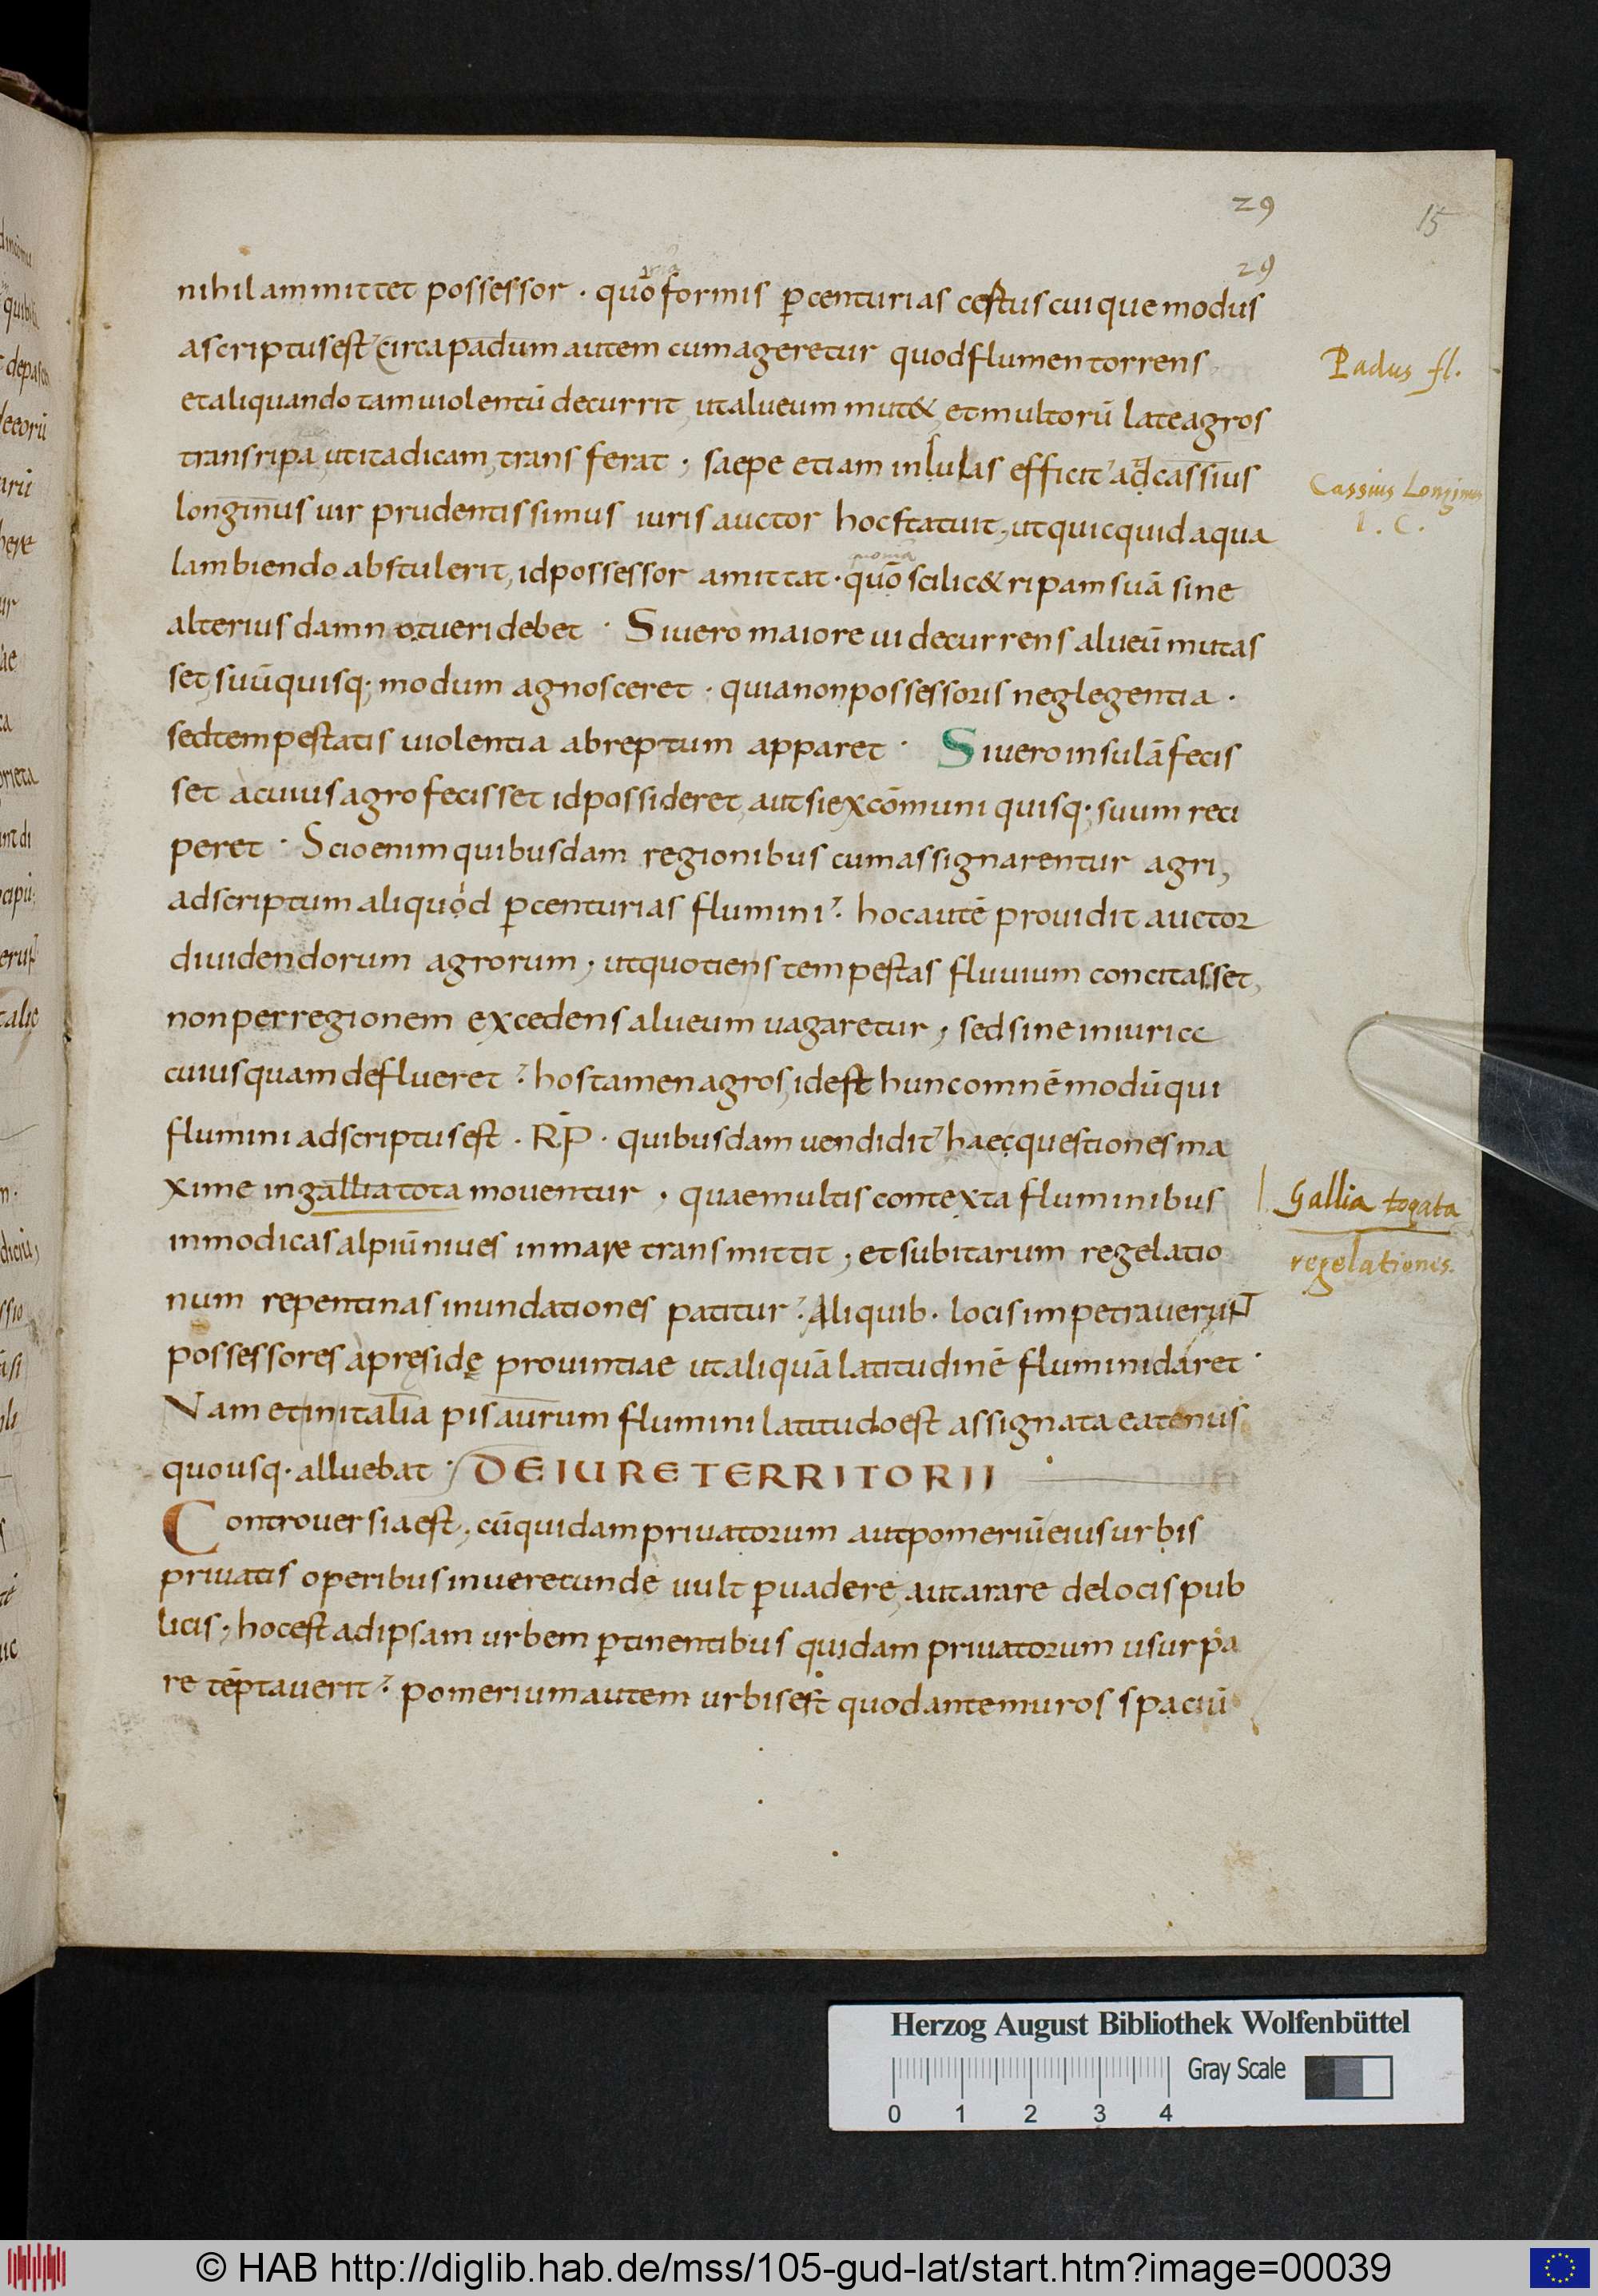 29
15
29
nihil ammittet possessor · quō formis ꝑ centurias cestus cuique modus
ascriptus est circa padum autem cum ageretur quod flumen torrens
Padus fl.
et aliquando tam uiolentū decurrit, ut alueum mut&, et multorū late agros
trans ripa, ut ita dicam, trans ferat; saepe etiam inlulas efficit ad cassius
Cassius Longinus
I. C.
longinus uir prudentissimus iuris auctor hoc statuit, ut quicquid aqua
lambiendo abstulerit, id possessor amittat · quō scilic& ripam suā sine
alterius damno tueri debet · Si uero maiore ui decurrens alueū mutas
set, suū quisq; modum agnosceret · quia non possessoris neglegentia ·
sed tempestatis uiolentia abreptum apparet · Si uero insulā fecis
set à cuius agro fecisset id possideret, aut si ex cōmuni quisq; suum reci
peret · Scio enim quibusdam regionibus cum assignarentur agri,
adscriptum aliquod ꝑ centurias flumini · hoc autē prouidit auctor
diuidendorum agrorum, ut quotiens tempestas fluuium concitasset,
non per regionem excedens alueum uagaretur, sed sine iniuria
cuiusquam deflueret · hos tamen agros, id est hunc omnē modū qui
flumini adscriptus est · R̄P · quibusdam uendidit haec questiones ma
xime in gallia tota mouentur, quae multis contexta fluminibus
Gallia togata
inmodicas alpiū niues in mare transmittit, et subitarum regelatio
regelationis.
num repentinas inundationes patitur · Aliquib· locis impetrauerunt
possessores à preside prouintiae ut aliquā latitudinē flumini daret ·
Nam et in italia pisaurum flumini latitudo est assignata eatenus
quousq· alluebat · DE IURE TERRITORII
Controuersia est, cū quidam priuatorum aut pomeriū eius urbis
priuatis operibus inuerecunde uult ꝑuadere, aut arare de locis pub
licis, hoc est ad ipsam urbem ꝑtinentibus quidam priuatorum usurpa
re tēptauerit · pomerium autem urbis est quod ante muros spaciū
Herzog August Bibliothek Wolfenbüttel
Gray Scale
0 1 2 3 4
© HAB http://diglib.hab.de/mss/105-gud-lat/start.htm?image=00039